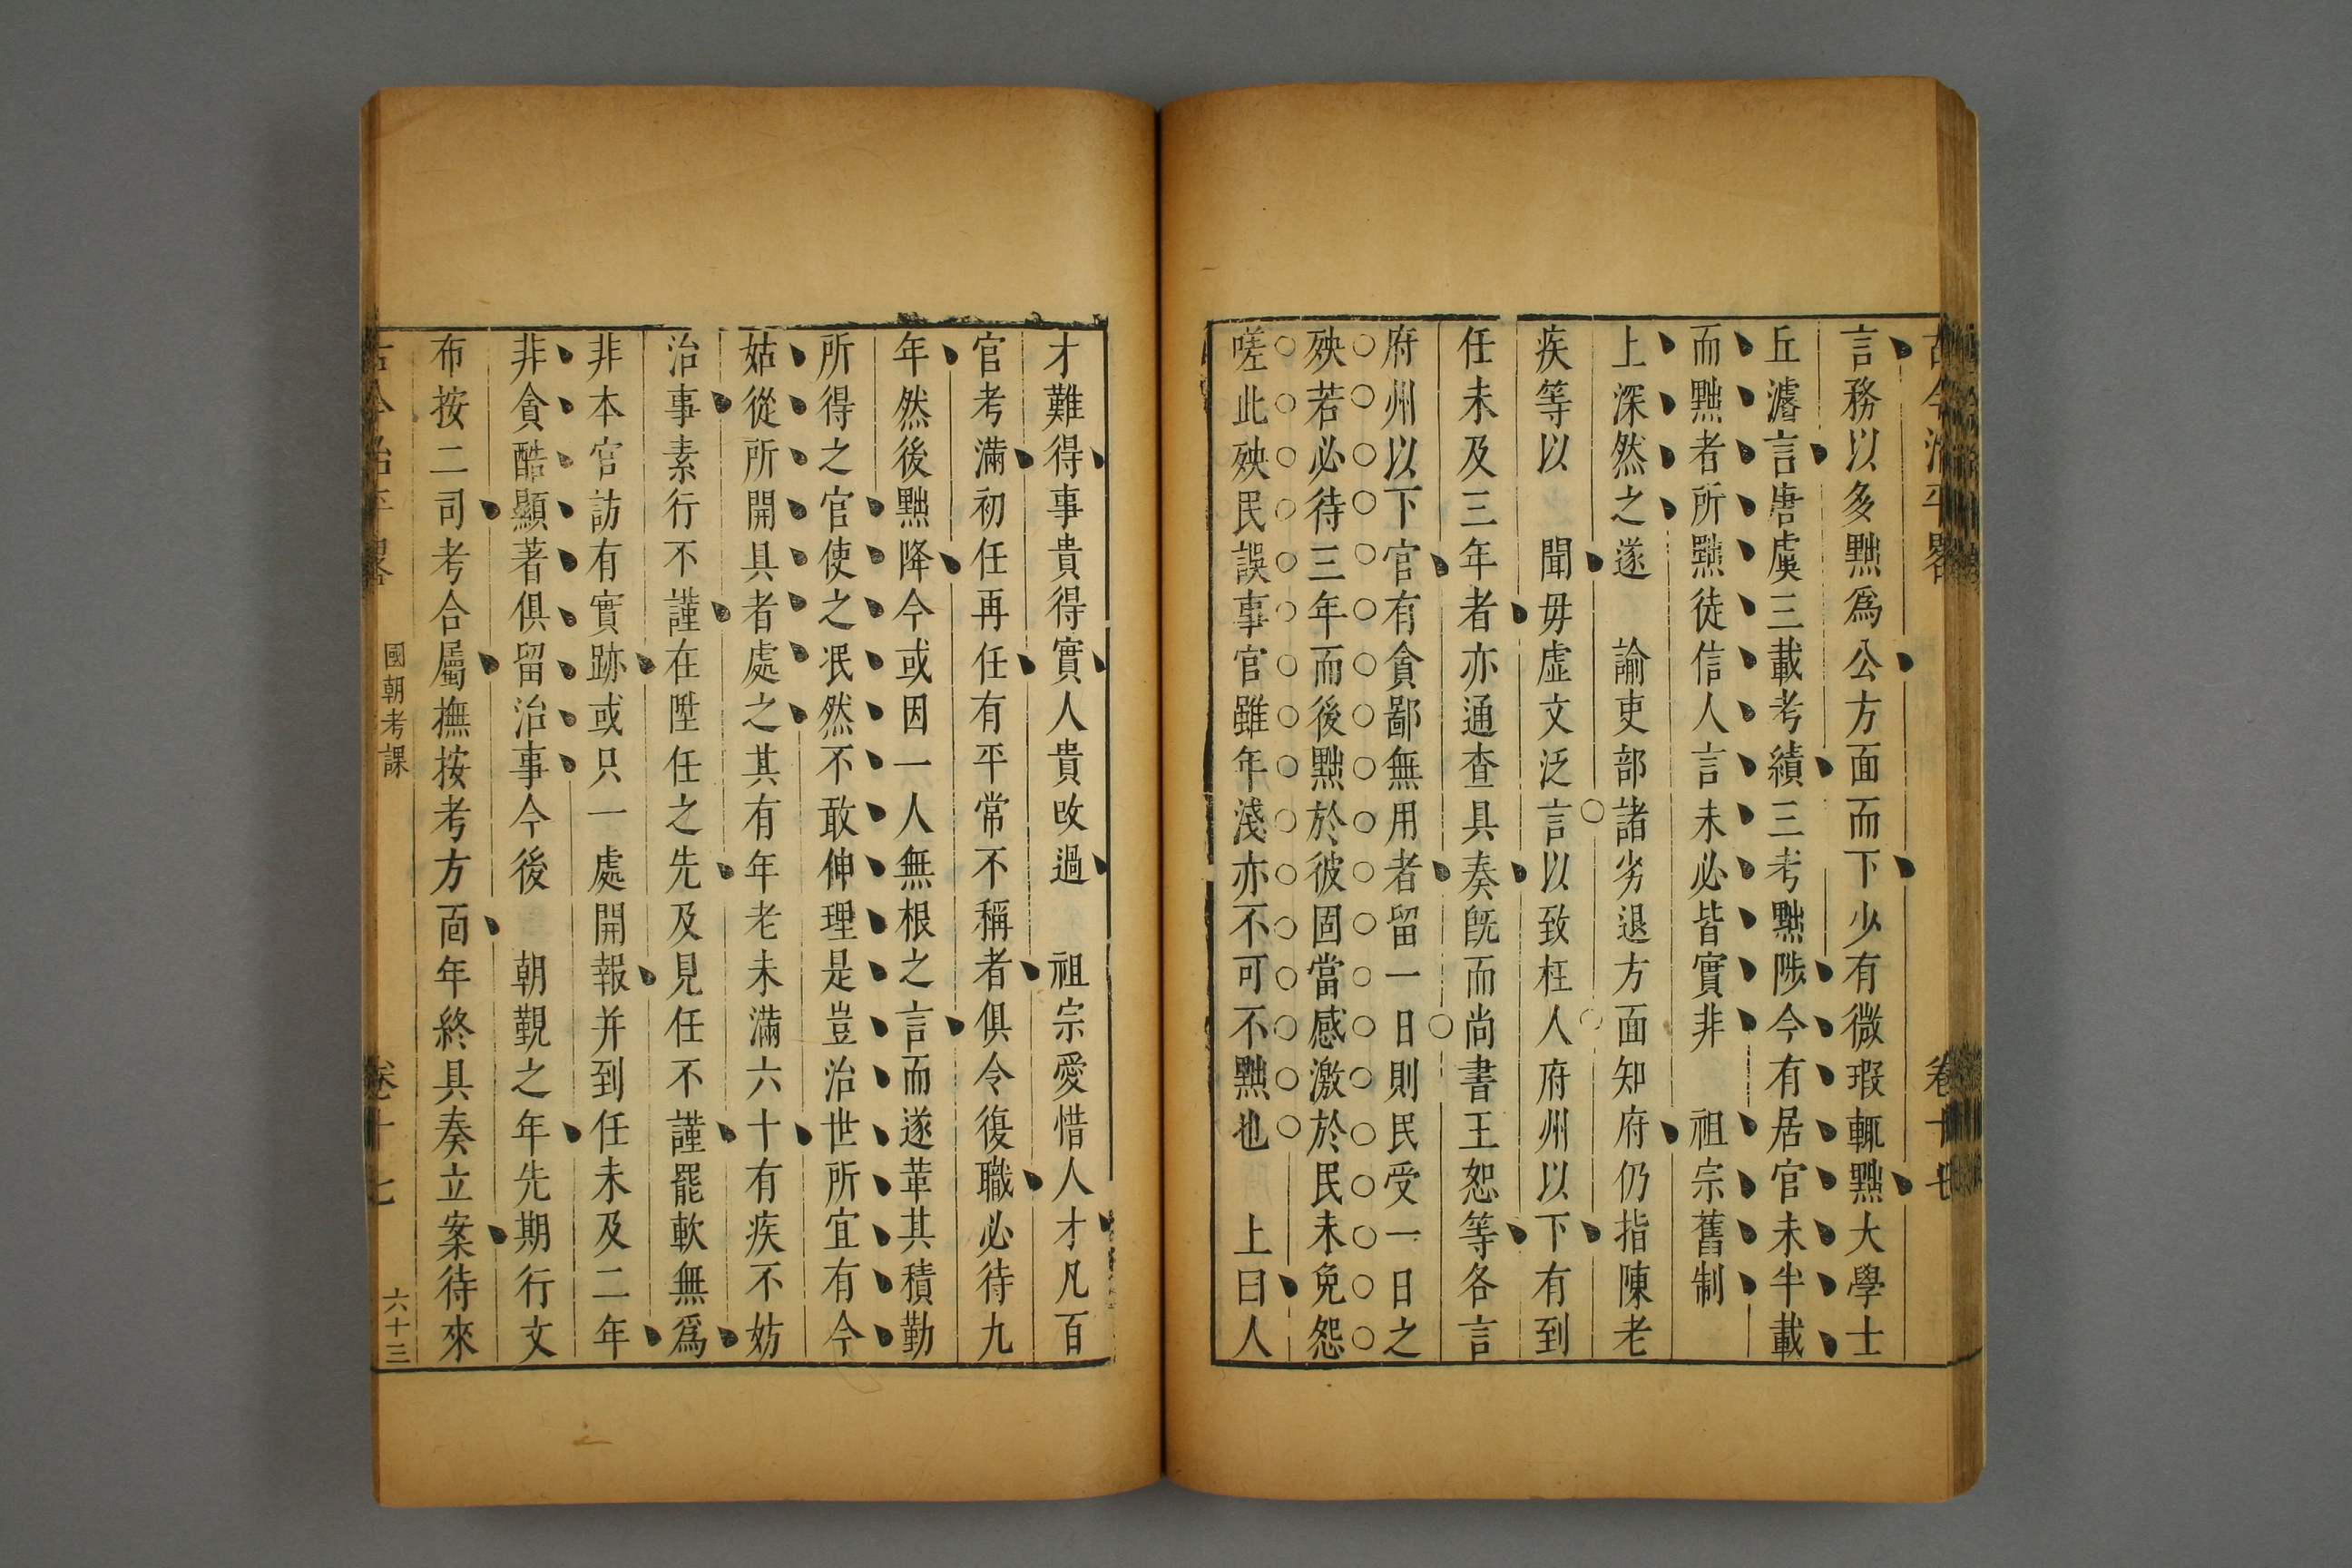 古今治平畧 卷十七
言務以多黜爲公方面而下少有微瑕輒黜大學士
丘濬言唐虞三載考績三考黜陟今有居官未半載
而黜者所黜徒信人言未必皆實非 祖宗舊制
上深然之遂 諭吏部諸劣退方面知府仍指陳老
疾等以 聞毋虛文泛言以致枉人府州以下有到
任未及三年者亦通查具奏旣而尚書王恕等各言
府州以下官有貪鄙無用者留一日則民受一日之
殃若必待三年而後黜於彼固當感激於民未免怨
嗟此殃民誤事官雖年淺亦不可不黜也 上曰人
才難得事貴得實人貴改過 祖宗愛惜人才凡百
官考滿初任再任有平常不稱者俱令復職必待九
年然後黜降今或因一人無根之言而遂革其積勤
所得之官使之泯然不敢伸理是豈治世所宜有今
姑從所開具者處之其有年老未滿六十有疾不妨
治事素行不謹在陞任之先及見任不謹罷軟無爲
非本官訪有實跡或只一處開報并到任未及二年
非貪酷顯著俱留治事今後 朝覲之年先期行文
布按二司考合屬撫按考方面年終具奏立案待來
古今治平畧 國朝考課 卷十七 六十三